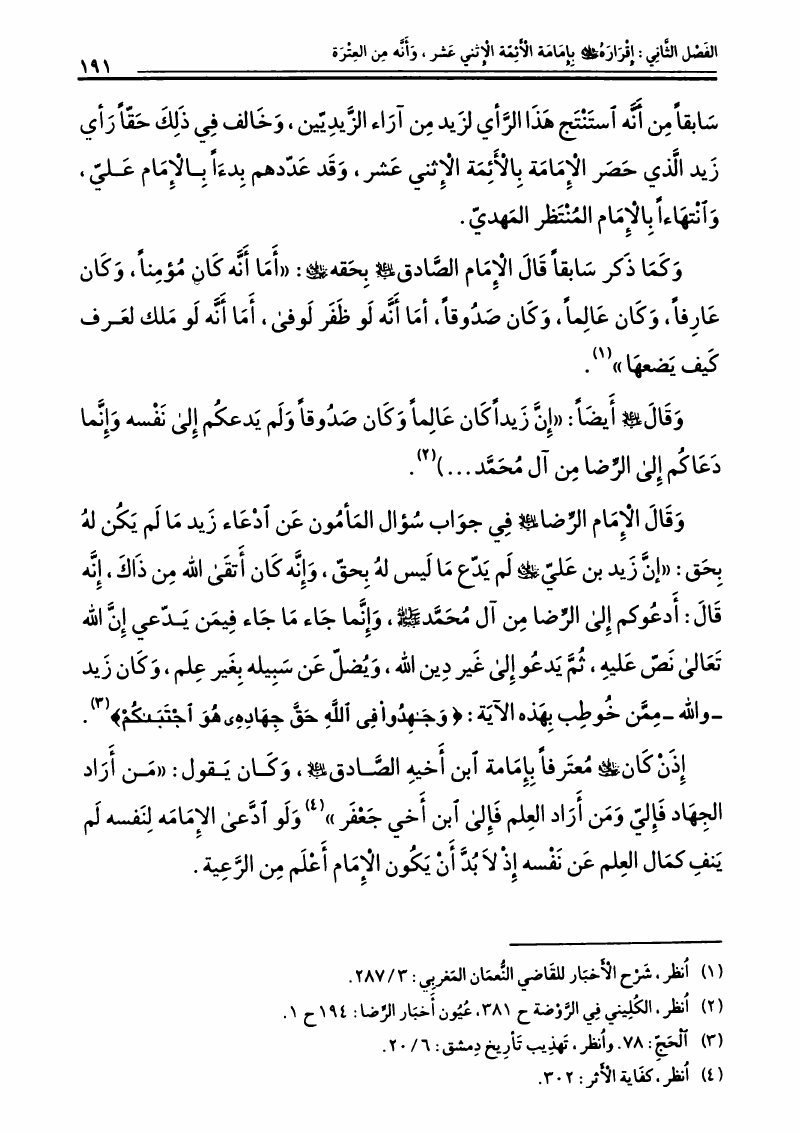 الفَصْل الثَّاني : إِقْرَارَهُ بِإِمَامَة الْأَئِمَّة الْإِثني عَشر ، وَأَنَّه مِن العِتْرَة
١٩١
سَابقاً مِن أَنَّه ٱستَنْتَج هَذَا الرَّأي لزَيد مِن آرَاء الزَّيديّين ، وَخَالف فِي ذَلِكَ حَقّاً رَأي
زَيد الَّذي حَصَر الْإِمَامَة بِالْأَئِمَة الْإِثني عَشر ، وَقَد عَدّدهم بِدءَاً بِـالْإِمَام عَـليّ ،
وَٱنْتهَاءاً بِالْإِمَام المُنْتَظر المَهديّ .
وَكَمَا ذَكر سَابقاً قَالَ الْإِمَام الصَّادق بِحَقه : «أَمَا أَنَّه كَان مُؤمِناً ، وَكَان
عَارِفاً ، وَكَان عَالِماً ، وَكَان صَدُوقاً ، أمَا أَنَّه لَو ظَفَر لَوفىٰ ، أَمَا أَنَّه لَو مَلك لعَـرف
كَيف يَضعهَا »(١) .
وَقَالَ أَيضَاً : «إِنَّ زَيداً كَان عَالِماً وَكَان صَدُوقاً وَلَم يَدعكُم إِلىٰ نَفْسه وَإِنَّما
دَعَاكُم إِلىٰ الرِّضا مِن آل مُحَمَّد...)(٢) .
وَقَالَ الْإِمَام الرِّضا فِي جوَاب سُؤال المَأمُون عَن ٱدْعَاء زَيد مَا لَم يَكُن لهُ
بِحَق : «إِنَّ زَيد بن عَليّ لَم يَدّع مَا لَيس لهُ بِحقّ ، وَإِنَّه كَان أَتقَىٰ الله مِن ذَاكَ ، إِنَّه
قَالَ : أَدعُوكم إِلىٰ الرِّضا مِن آل مُحَمَّد ، وَإِنَّما جَاء مَا جَاء فِيمَن يَـدّعي إِنَّ الله
تَعَالىٰ نَصّ عَليهِ ، ثُمَّ يَدعُو إِلىٰ غَير دِين الله ، وَيُضلّ عَن سَبِيله بِغَير عِلم ، وَكَان زَيد
ـ والله ـ مِمَّن خُوطِب بِهَذه الآيَة : ﴿ وَجَـٰهِدُواْ فِى ٱللَّهِ حَقَّ جِهَادِهِى هُوَ ٱجْتَبَـٰـكُمْ ﴾(٣) .
إِذَنْ كَان مُعتَرفاً بِإِمَامة ٱبن أَخيهِ الصَّـادق ، وَكَـان يَـقول : «مَـن أَرَاد
الجِهَاد فَإِليّ وَمَن أَرَاد العِلم فَإِلىٰ ٱبن أَخي جَعْفَر »(٤) وَلَو ٱدَّعىٰ الإِمَامَه لِنَفسه لَم
يَنفِ كمَال العِلم عَن نَفْسه إِذْ لَا بُدَّ أَنْ يَكُون الْإِمَام أَعْلَم مِن الرَّعِية .
(١) اُنظر ، شَرْح الْأَخبَار للقَاضي النُّعمَان المَغربي : ٣ / ٢٨٧.
(٢) اُنظر ، الكُلِيني فِي الرَّوْضة ح ٣٨١، عُيُون أَخبَار الرِّضا : ١٩٤ ح ١.
(٣) اَلْحَجّ : ٧٨. واُنظر ، تَهذِيب تَأرِيخ دِمشق : ٦ / ٢٠.
(٤) اُنظر ، كفَاية الْأَثر : ٣٠٢.